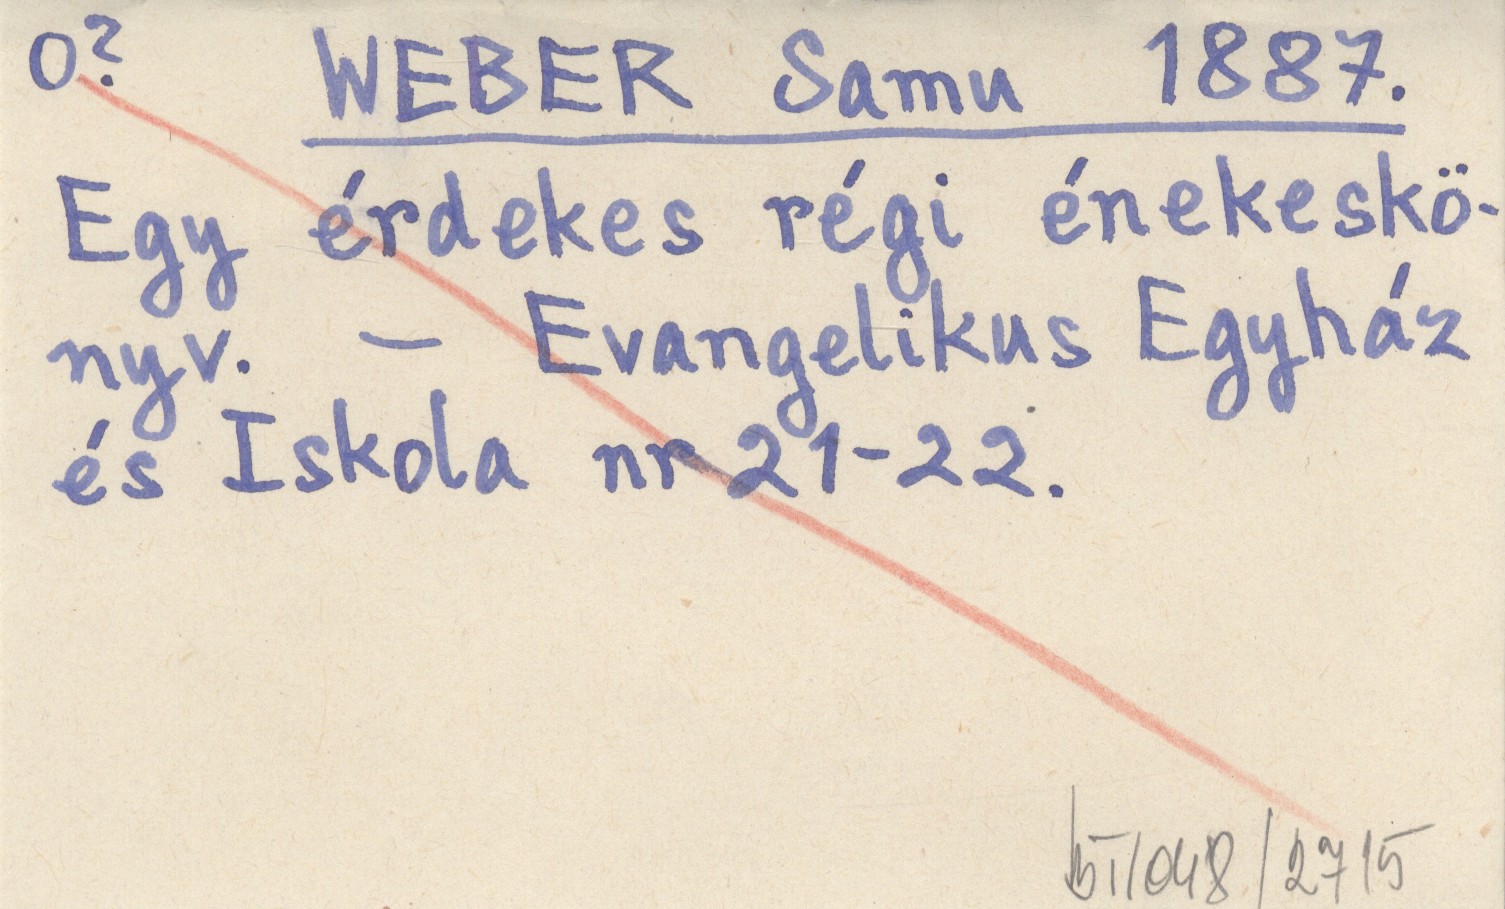 O? WEBER Samu 1887.
Egy érdekes régi énekeskö-
nyv. — Evangelikus Egyház
és Iskola nr 21-22.
/048/2715